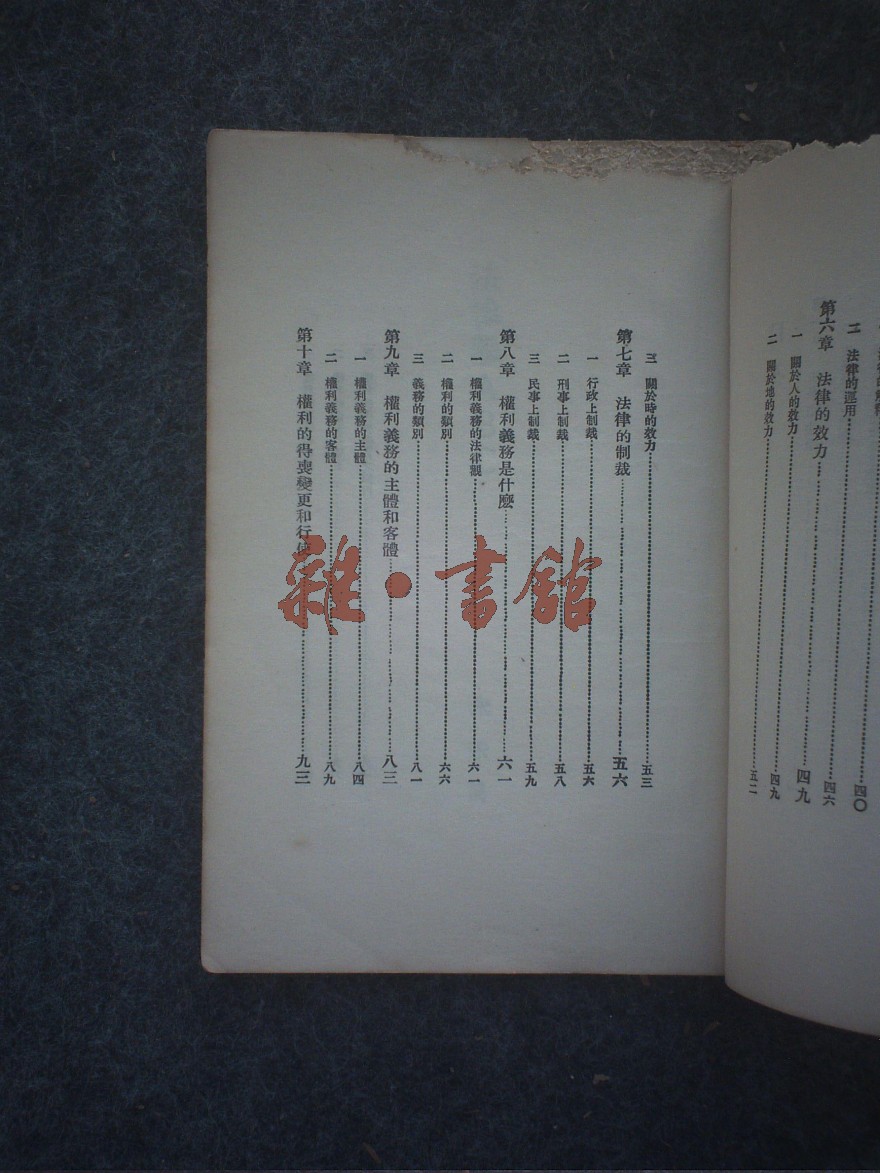 四〇
二 法律的運用 四六
第六章 法律的效力 四九
一 關於人的效力 四九
二 關於地的效力 五二
三 關於時的效力 五三
第七章 法律的制裁 五六
一 行政上制裁 五六
二 刑事上制裁 五八
三 民事上制裁 五九
第八章 權利義務是什麽 六一
一 權利義務的法律觀 六一
二 權利的類別 六六
三 義務的類別 八一
第九章 權利義務的主體和客體 八三
一 權利義務的主體 八四
二 權利義務的客體 八九
第十章 權利的得喪變更和行使 九三
雜·書館